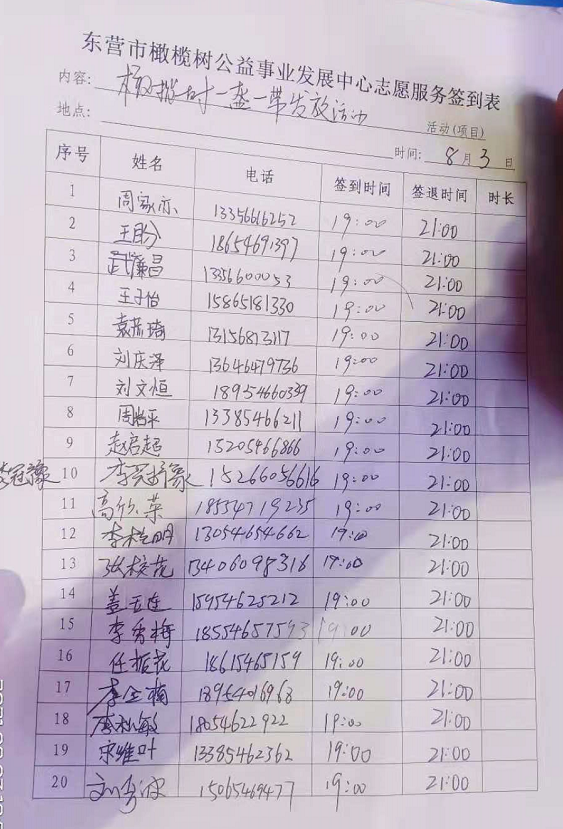 东营市橄榄树公益事业发展中心志愿服务签到表
内容: 橄榄树一盔一带发放活动 活动(项目)
地点: 时间: 8月3日
序号 姓名 电话 签到时间 签退时间 时长
1 周家亦 13356616252 19:00 21:00
2 王盼 18654691397 19:00 21:00
3 武廉昌 13356600053 19:00 21:00
4 王子怡 15865181330 19:00 21:00
5 袁荔琦 13156813117 19:00 21:00
6 刘庆泽 13646479736 19:00 21:00
7 刘文恒 18954660339 19:00 21:00
8 13385466211 19:00 21:00
9 赵启超 15205466866 19:00 21:00
10 15266056616 19:00 21:00
11 高欣荣 18554719235 19:00 21:00
12 13054654662 19:00 21:00
13 张校花 13406098316 19:00 21:00
14 盖玉连 15954625212 19:00 21:00
15 李秀梅 18554657593 19:00 21:00
16 任振花 18615465159 19:00 21:00
17 李金楠 18954016968 19:00 21:00
18 李秋敏 18054622922 19:00 21:00
19 宋维叶 13385462362 19:00 21:00
20 刘秀波 15065469477 19:00 21:00